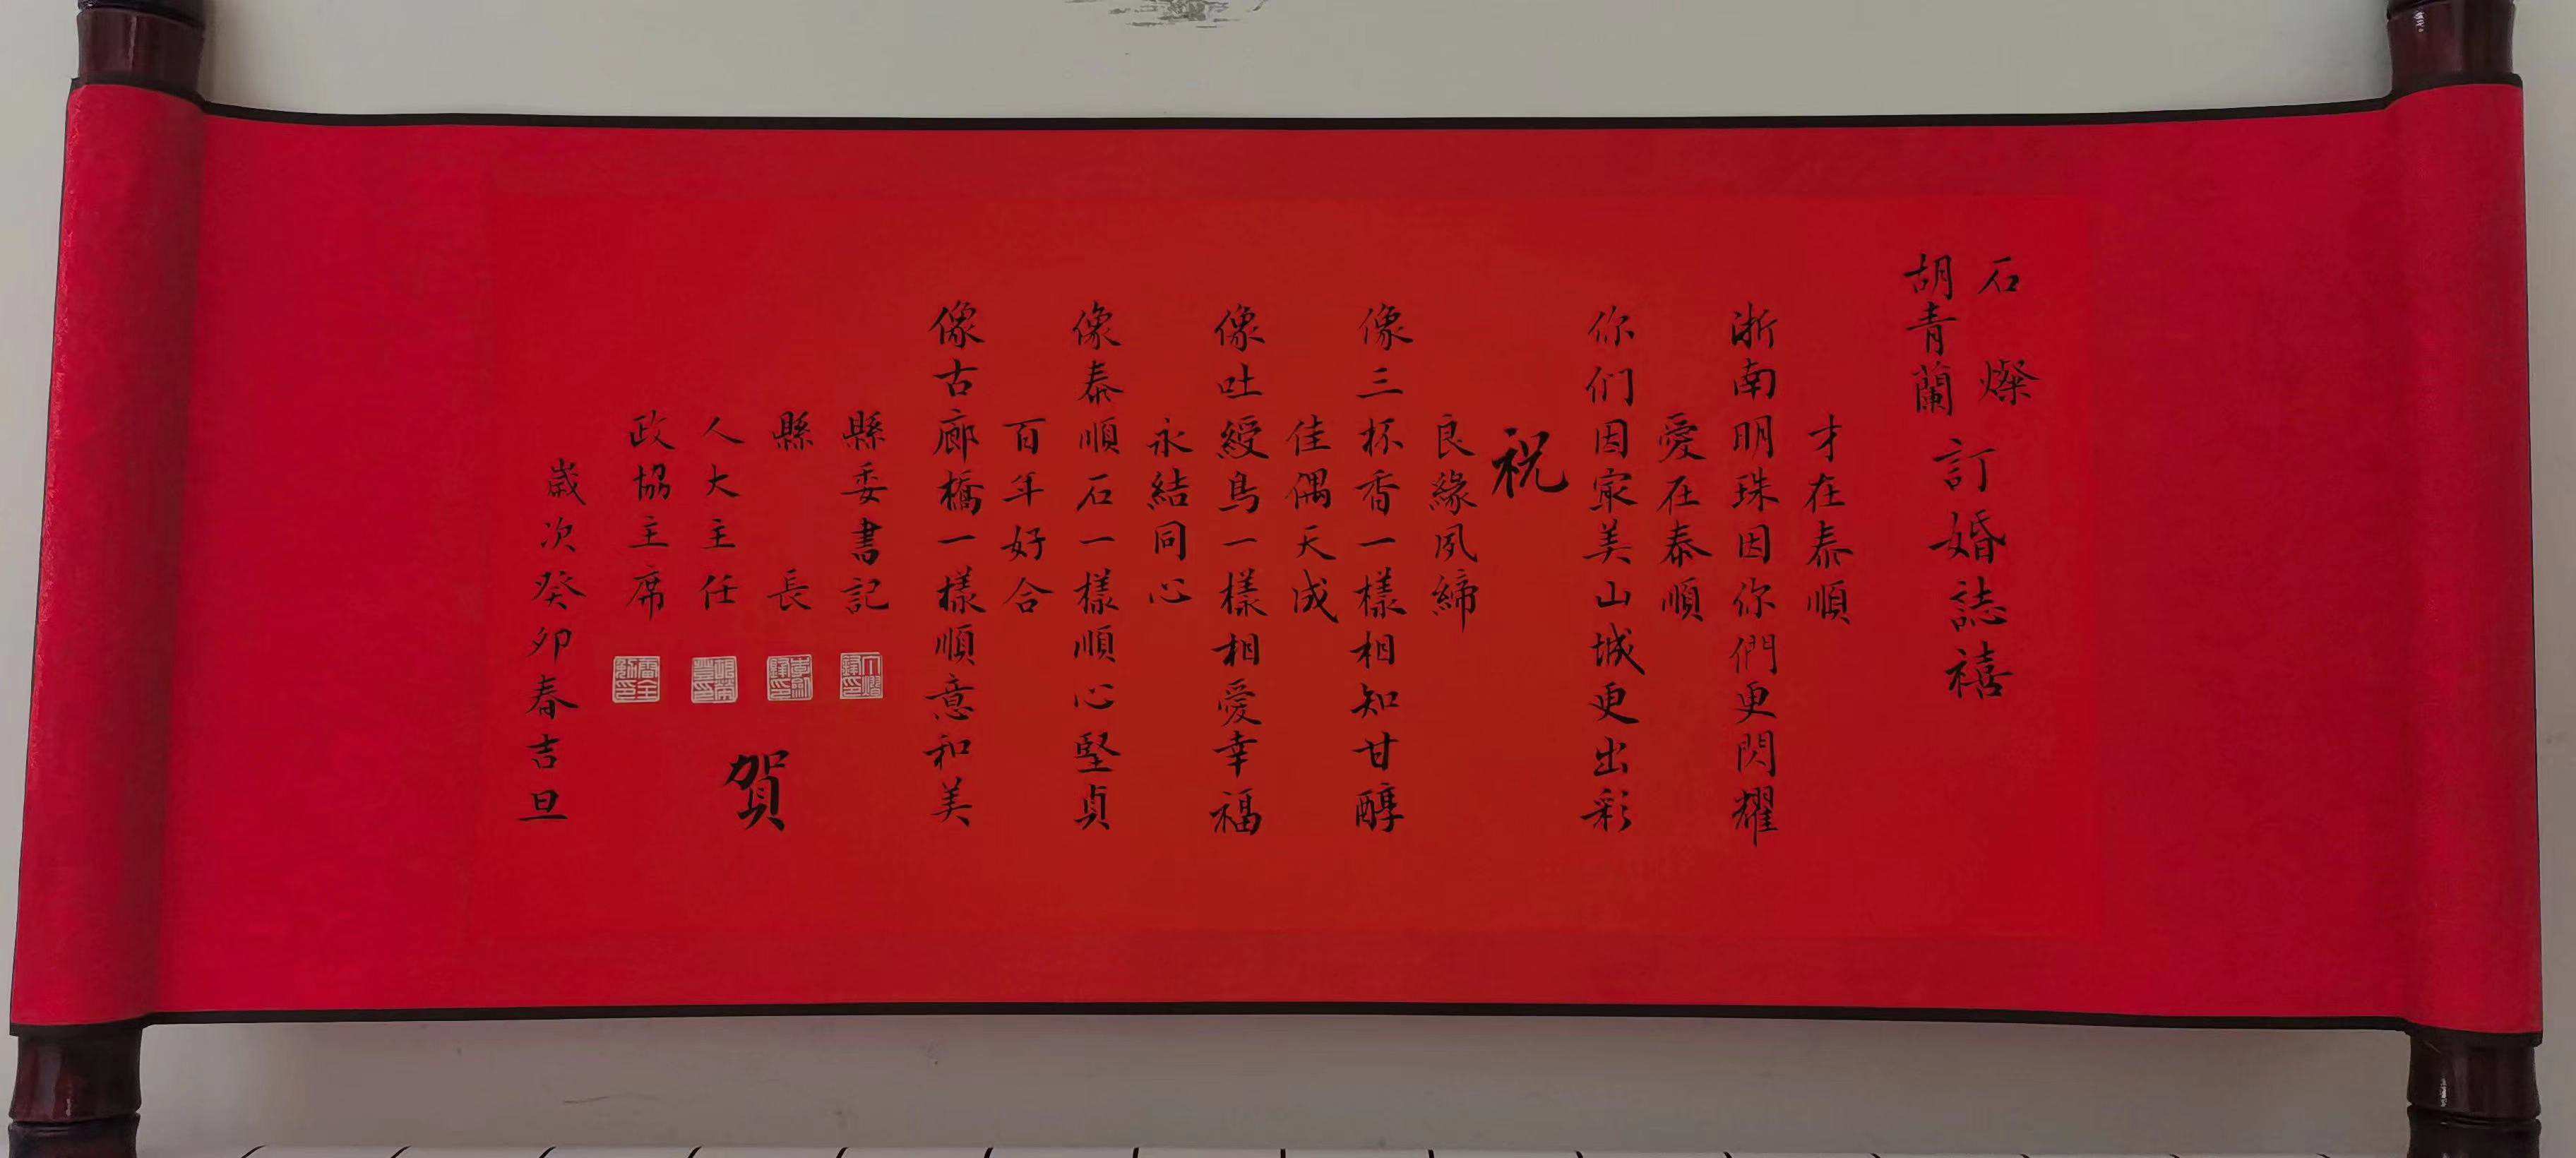 石燦
胡青蘭
訂婚誌禧
才在泰順
浙南明珠因你們更閃耀
愛在泰順
你们因家美山城更出彩
祝
良緣夙締
像三杯香一樣相知甘醇
佳偶天成
像吐綬鳥一樣相愛幸福
永結同心
像泰順石一樣順心堅貞
百年好合
像古廊橋一樣順意和美
縣委書記
縣長
人大主任
政協主席
賀
歲次癸卯春吉旦